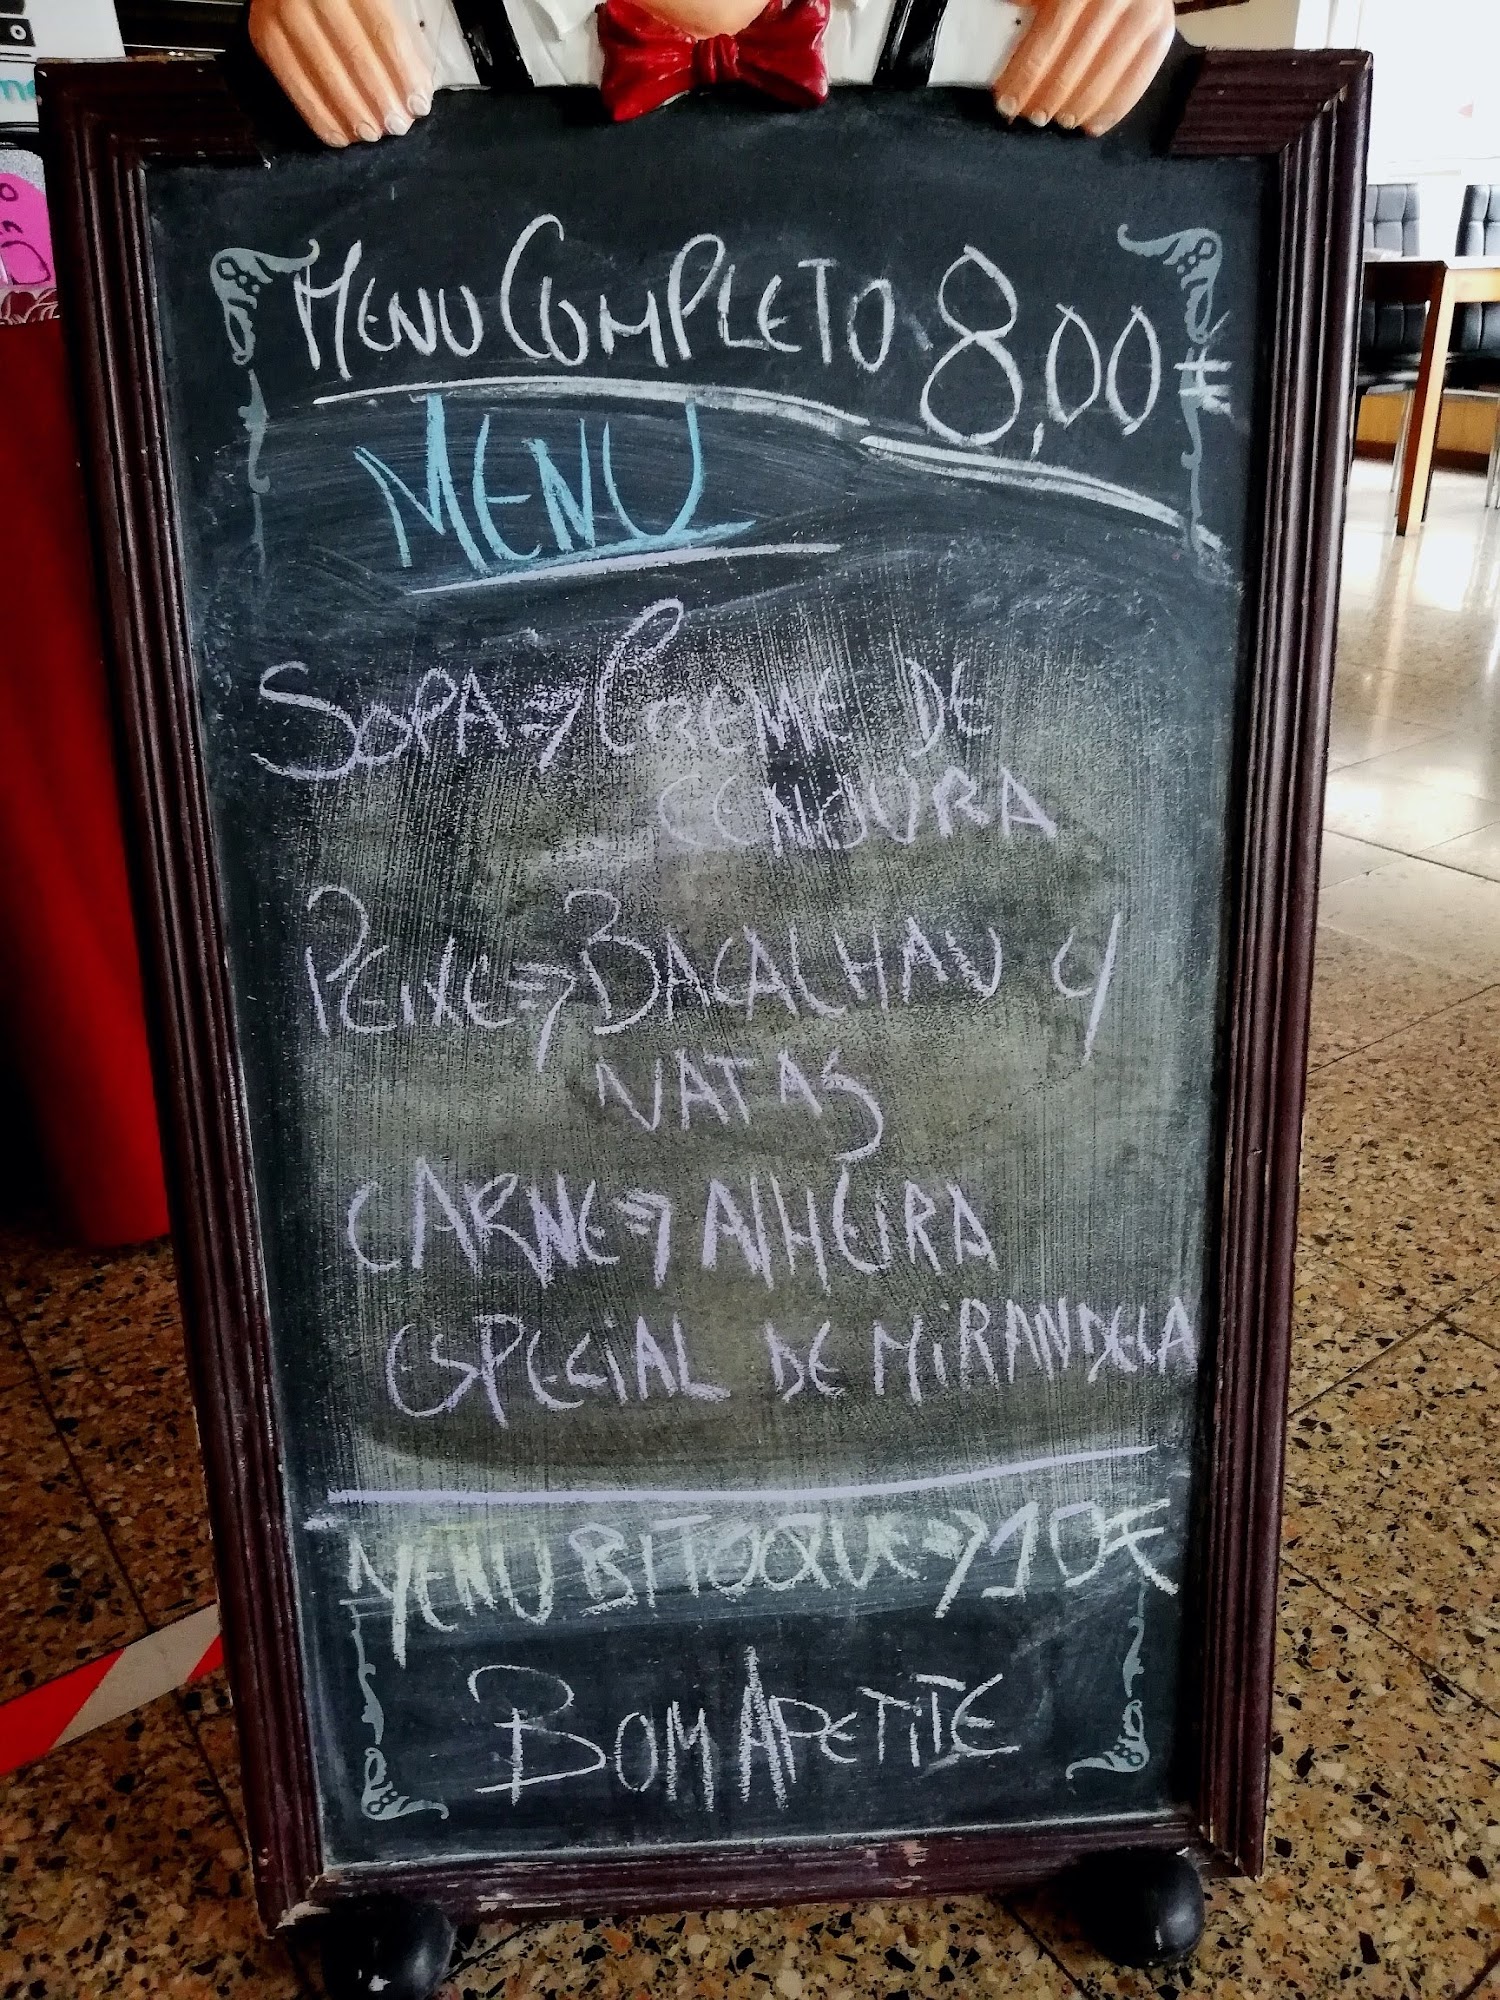 MENU COMPLETO 8,00€
MENU
SOPA => CREME DE
CENOURA
PEIXE => BACALHAU C/
NATAS
CARNE => ALHEIRA
ESPECIAL DE MIRANDELA
MENU BITOQUE => 10€
BOM APETITE